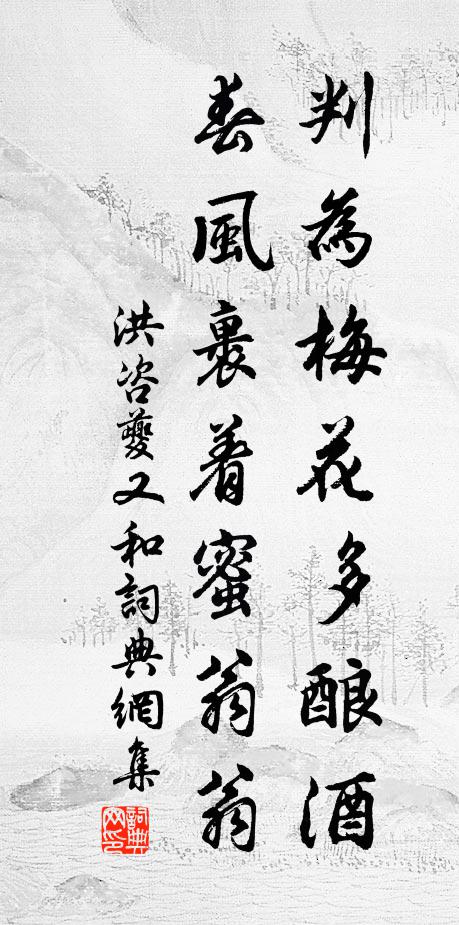 判為梅花多酿酒
春風裏着蜜翁翁
洪咨夔又和詞典網集
詞典网印